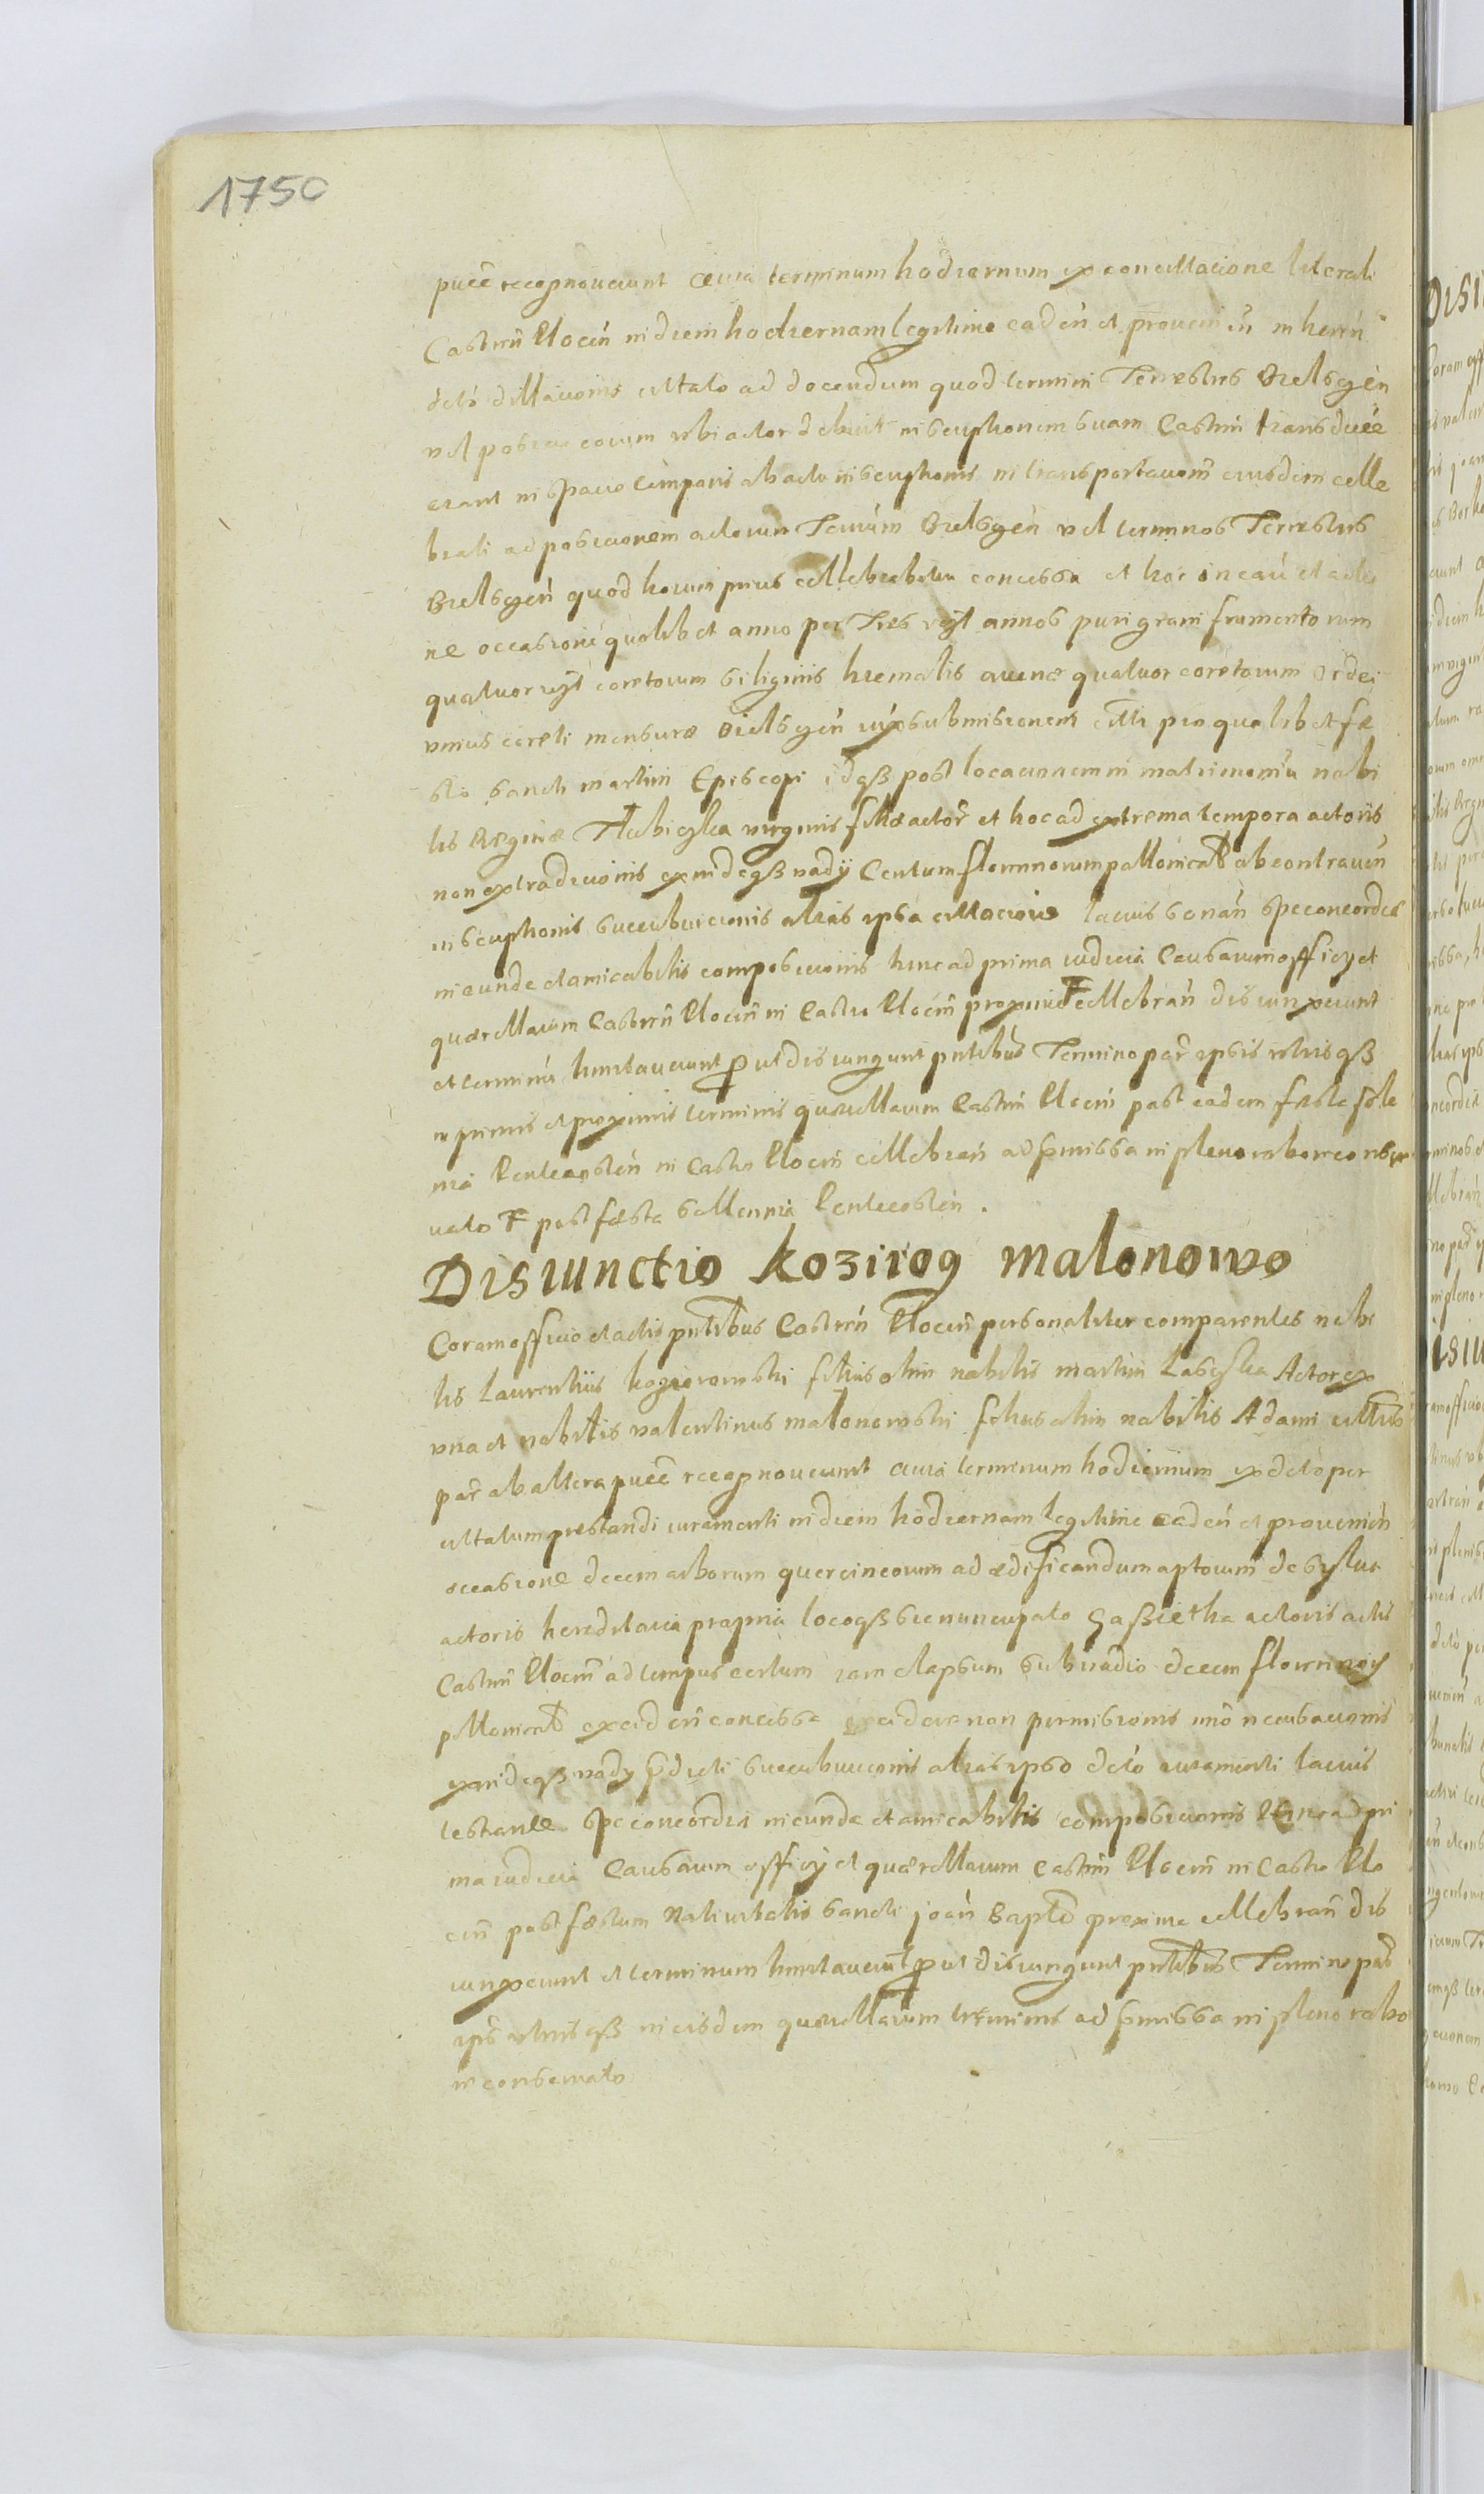 1750
puce recognoverunt quia terminum hodiernum ex concitacione literali
Castrn̄ Plocen̄ in diem hodiernam legitime caden̄ et provenien̄ inherrn̄
citato ad docendum quod termini Terrestres Bielsgen̄
vel positio eorum ubi actor debuit inscriptionem suam Castrn̄ transducere
erant in spacio temporis ab actu inscriptionis in transportationem eiusdem celle
brati ad positionem actorum Terrn̄ Bielsgen̄ vel terminos Terrestres
Bielsgen̄ quod horum prius cellebrabitur concessa et hoc
ne occasione quolibet anno per Tres vgl annos puri grani frumentorum
quatuor vgl coretorum siliginis hiemalis avenæ quatuor coretorum ordei
unius coreti mensuræ Bielsgen̄ submissionem pro quolibet fæ
sto sancti martini Episcopi idqß post locacionem in matrimoniū nobi
lis Reginæ virginis filiæ actor̄ et hoc ad extrema tempora actoris
non extradicionis exindeqß vadÿ Centum florenorum pollonical̄ ab contraven̄
inscriptionis succubuicionis alias ipsa citacione lacius sonan̄ spe concordiæ
ineundæ et amicabilis composicionis hinc ad prima iudicia Causarum officÿ et
quærellarum Castrn̄ Plocen̄ in Castro Plocen̄ proxime cellebran̄ disiunxerunt
et terminū limitaverunt put disiungunt pntibus Termino par̄ ipsis utrisqß
in primis et proximis terminis quærellarum Castrn̄ Plocen̄ post eadem festa sole
nia Pentecosten̄ in Castro Plocen̄ cellebran̄ ad pmissa in pleno robore conser
vato post fæsta sollennia Pentecosten̄.
Disiunctio kozirog malonowo
Coram officio et actis pntibus Castren̄ Plocen̄ personaliter comparentes nobi
lis Laurentius kozirowski filius olim nobilis martini Labiska Actor ex
una et nobilis valentinus malonowski filius olim nobilis Adami citatus
par̄ ab altera puce recognoverunt quia terminum hodiernum ex dcto per
citatum prestandi iuramenti in diem hodiernam legitime caden̄ et provenien̄
occasione decem arborum quercineorum ad ædificandum aptorum de sylva
actoris hereditaria propria locoqß sic nuncupato Gaßietka actoris actis
Castrn̄ Plocen̄ ad tempus certum iam elapsum sub vadio decem florenois
pllonical̄ exciden̄ concessæ excidere non permissionis imo recusacionis
exindeqß vadÿ pdicti succubuicionis alias ipso dcto iuramenti lacius
testante spe concordiæ ineundæ et amicabilis composicionis hinc ad pri
ma iudicia Causarum officÿ et quærellarum Castrn̄ Plocen̄ in Castro Plo
cen̄ post fæstum Nativitatis Sancti joan̄ Bapte proxime cellebran̄ dis
iunxerunt et terminum limitaverunt put disiungunt pntibus Termino par̄
ips utrisqß in eisdem quærellarum terminis ad pmissa in pleno robo
re conservato